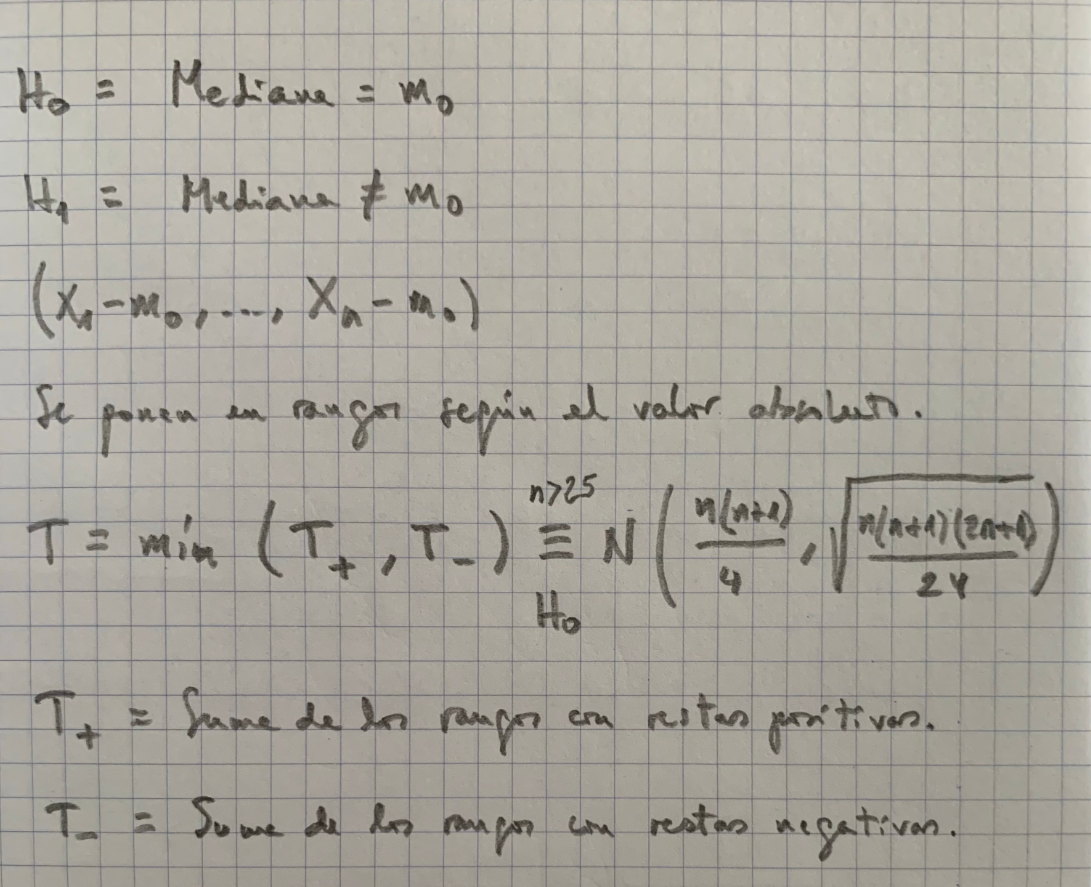 H₀ = Mediana = m₀
H₁ = Mediana ≠ m₀
(X₁-m₀, ..., Xₙ-m₀)
Se ponen en rangos según el valor absoluto.
n>25
T = mín (T₊, T₋) ≡ N( n(n+1)/4 , √(n(n+1)(2n+1)/24) )
H₀
T₊ = Suma de los rangos con restas positivas.
T₋ = Suma de los rangos con restas negativas.